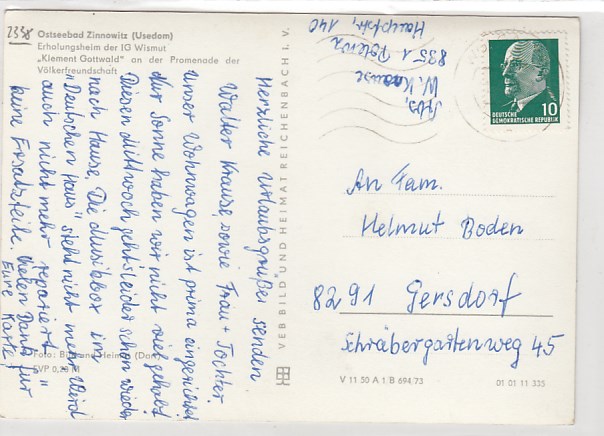 2338
Ostseebad Zinnowitz (Usedom)
Erholungsheim der IG Wismut
„Klement Gottwald" an der Promenade der
Völkerfreundschaft
Herzliche Urlaubsgrüße senden
Walter Krause, sowie Frau + Tochter
Unser Wohnwagen ist prima eingerichtet
Nur Sonne haben wir nicht viel gehabt
Diesen Mittwoch gehts leider schon wieder
nach Hause. Die Musikbox im
"Deutschen Haus" steht nicht mehr. Wird
auch nicht mehr repariert "
keine Ersatzteile. Vielen Dank für
Eure Karte
Foto: Bild und Heimat
EVP 0,20 M
VEB BILD UND HEIMAT REICHENBACH I. V.
Abs.
W. Krause
8351 Polenz
Hauptstr. 140
10
DEUTSCHE
DEMOKRATISCHE REPUBLIK
An Fam.
Helmut Boden
8291 Gersdorf
Schrebergartenweg 45
V 11 50 A 1 B 694/73
01 01 11 335